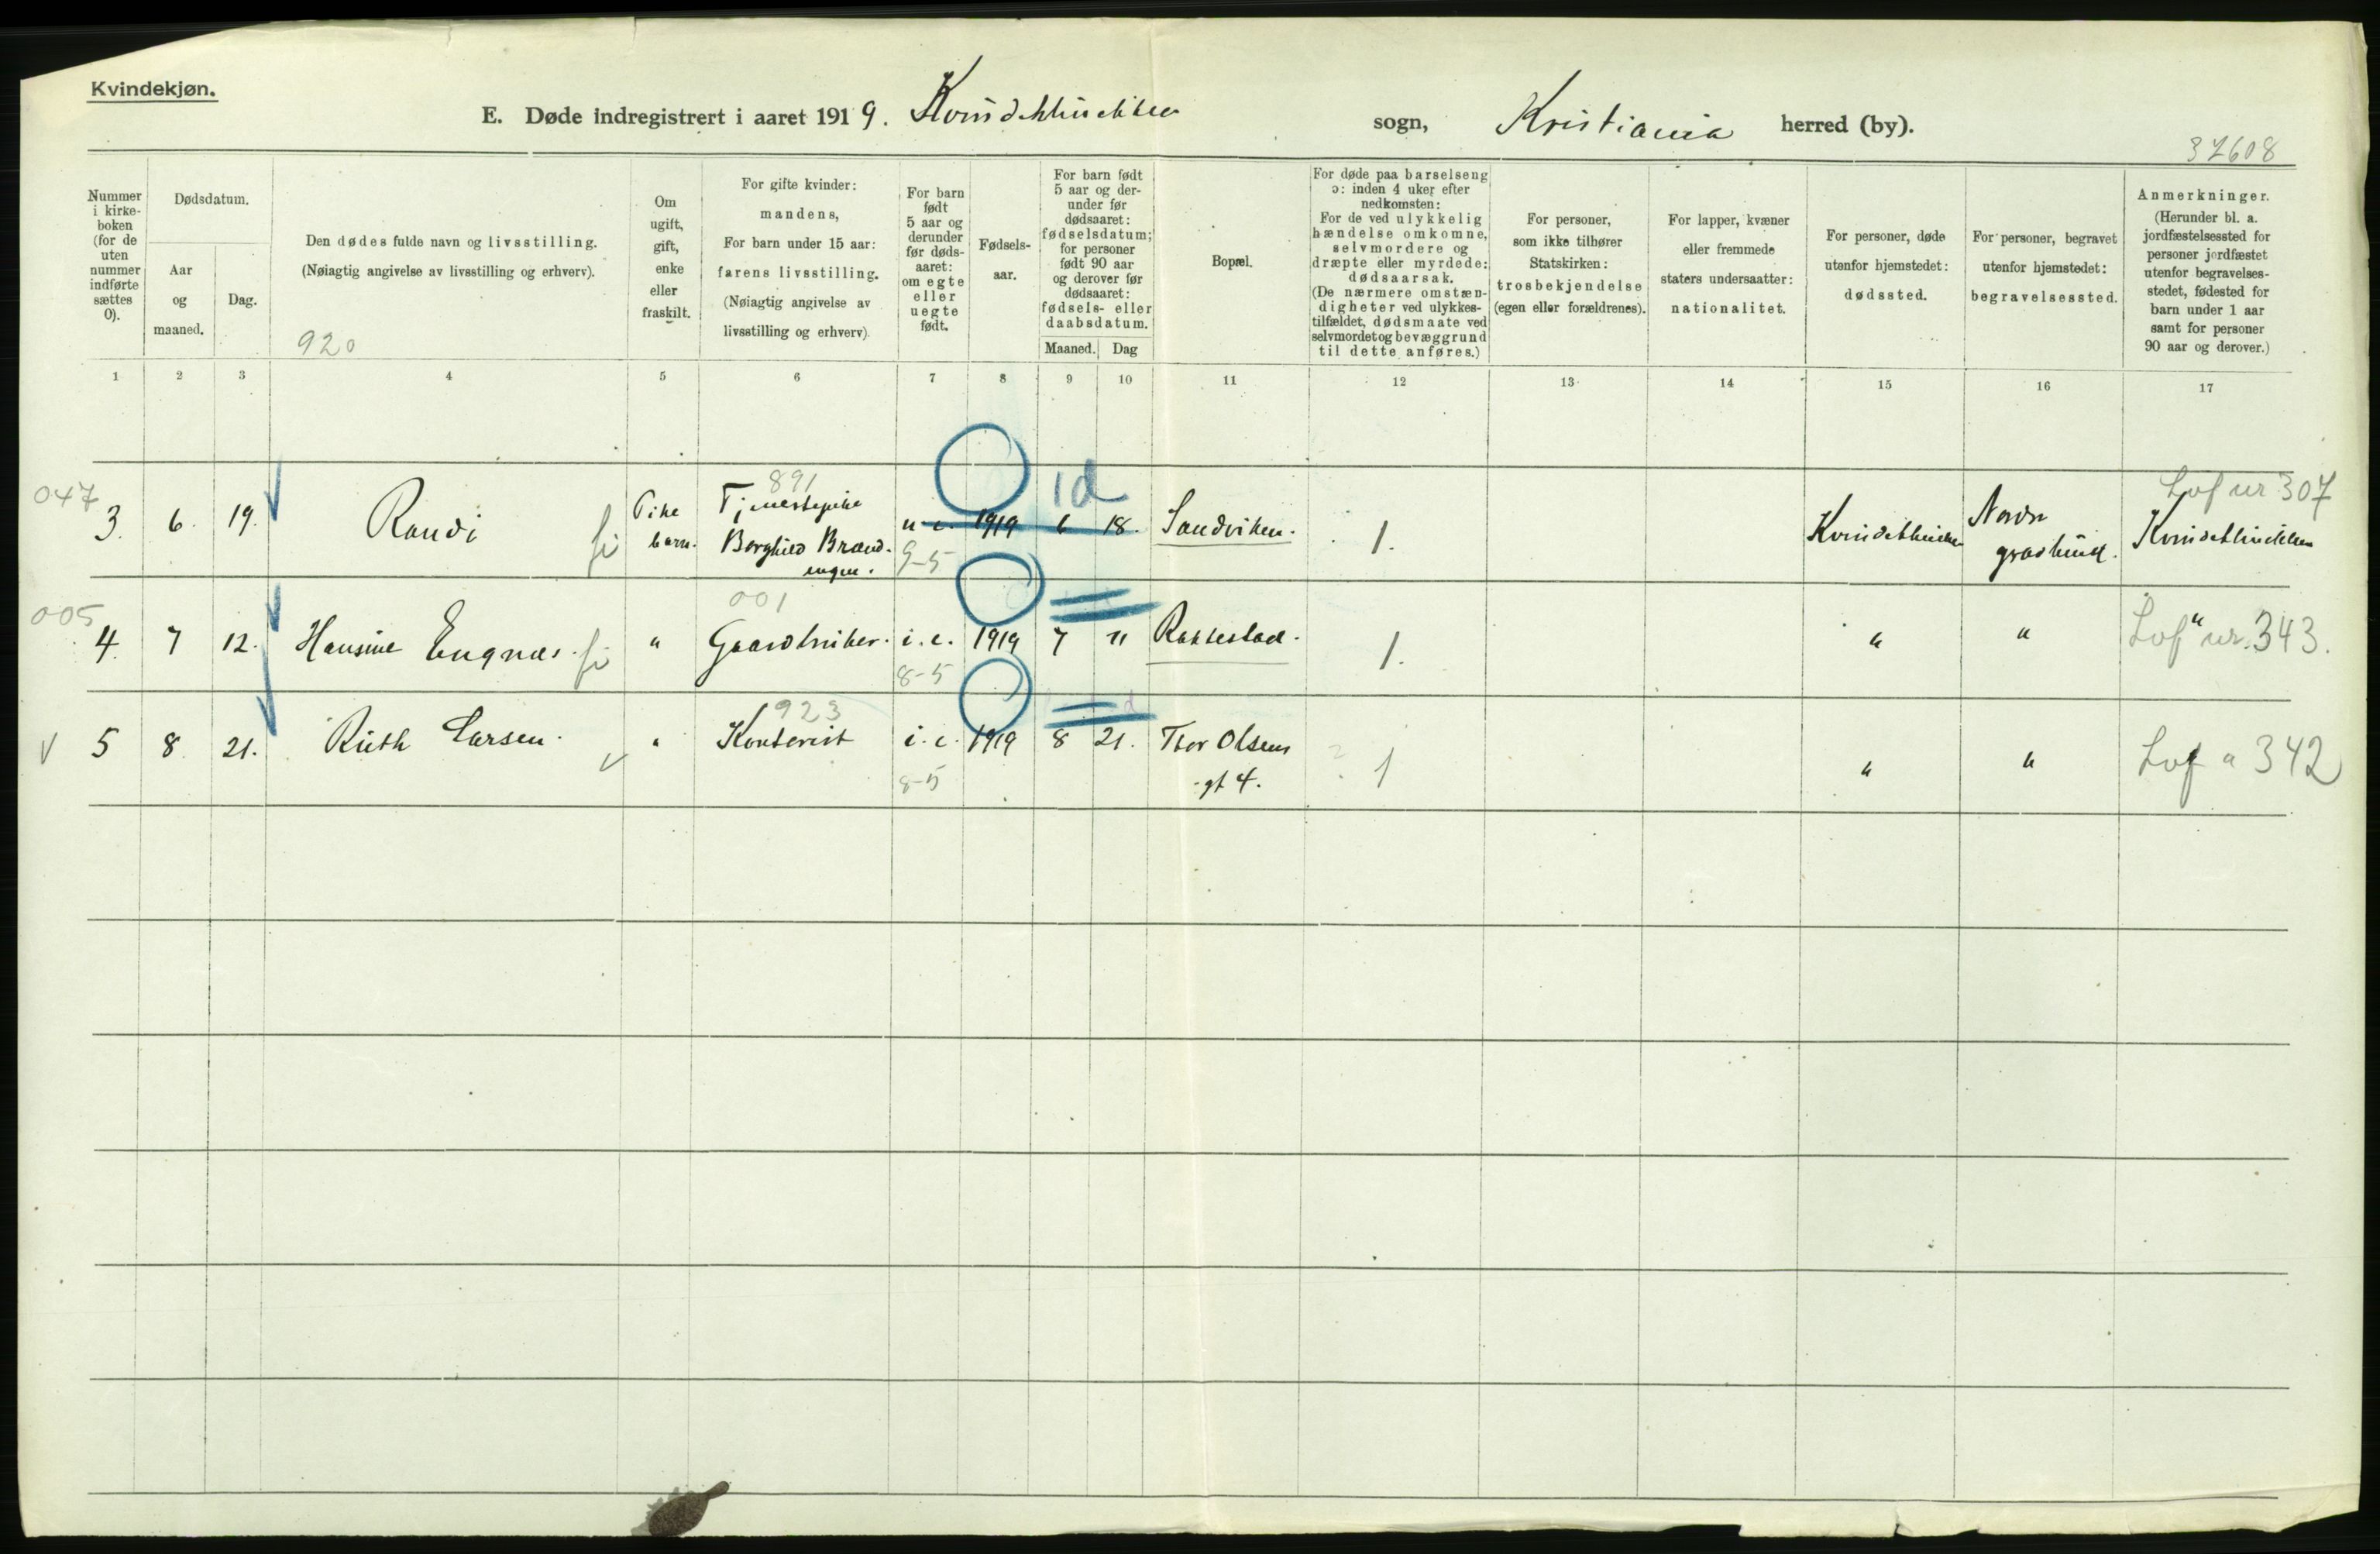 Kvindekjøn.
E. Døde indregistrert i aaret 1919. Kvindeklinikken sogn, Kristiania herred (by).
37608
Nummer i kirke- boken (for de uten nummer indførte sættes 0).
Dødsdatum.
Aar og maaned.
Dag.
Den dødes fulde navn og livsstilling.
(Nøiagtig angivelse av livsstilling og erhverv).
920
Om ugift, gift, enke eller fraskilt.
For gifte kvinder:
mandens,
For barn under 15 aar:
farens livsstilling.
(Nøiagtig angivelse av
livsstilling og erhverv).
For barn født 5 aar og derunder før døds- aaret: om egte eller uegte født.
Fødsels- aar.
For barn født 5 aar og der- under før dødsaaret: fødselsdatum; for personer født 90 aar og derover før dødsaaret: fødsels- eller daabsdatum.
Maaned. Dag
Bopæl.
For døde paa barselseng
ɔ: inden 4 uker efter
nedkomsten:
For de ved ulykkelig
hændelse omkomne,
selvmordere og
dræpte eller myrdede:
dødsaarsak.
(De nærmere omstæn-
digheter ved ulykkes-
tilfældet, dødsmaate ved
selvmordet og bevæggrund
til dette anføres.)
For personer,
som ikke tilhører
Statskirken:
trosbekjendelse
(egen eller forældrenes).
For lapper, kvæner
eller fremmede
staters undersaatter:
nationalitet.
For personer, døde
utenfor hjemstedet:
dødssted.
For personer, begravet
utenfor hjemstedet:
begravelsessted.
Anmerkninger.
(Herunder bl. a.
jordfæstelsessted for
personer jordfæstet
utenfor begravelses-
stedet, fødested for
barn under 1 aar
samt for personer
90 aar og derover.)
1 2 3 4 5 6 7 8 9 10 11 12 13 14 15 16 17
047 891 1d Lof nr 307
3. 6. 19. Randi Pike barn. Tjenestepike Borghild Brænd- engen. u. e. 1919 6 18. Sandviken. 1. Kvindeklinikken Nordre gravlund. Kvindeklinikken
9-5
005 001
4. 7 12. Hansine Engnæs. " Gaardbruker. i. e. 1919 7 11 Rakkestad. 1. " " " Lof nr. 343.
8-5
923
5 8. 21. Ruth Larsen. " Kontorist i. e. 1919 8 21. Thor Olsens gt 4. 1 " " Lof " 342
8-5